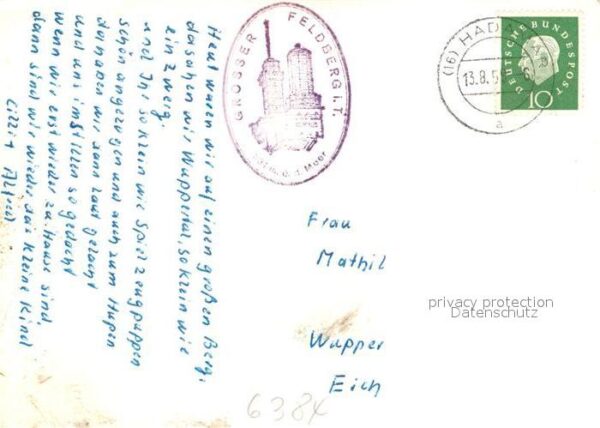 Heut waren wir auf einen großen Berg,
da sahen wir Wuppertal, so klein wie
ein Zwerg.
und Ihr so klein wie Spielzeugpuppen
schön angezogen und auch zum Hupen
darüber wir dann laut gelacht
und uns im stillen so gedacht
wenn wir erst wieder zu Hause sind
dann sind wir wieder das kleine Kind
Alfred
GROSSER FELDBERG i.T.
ü.d. Meer
(16) HAD
13.8.5
a
DEUTSCHE BUNDESPOST
10
Frau
Mathil
Wupper
Eich
privacy protection
Datenschutz
6384